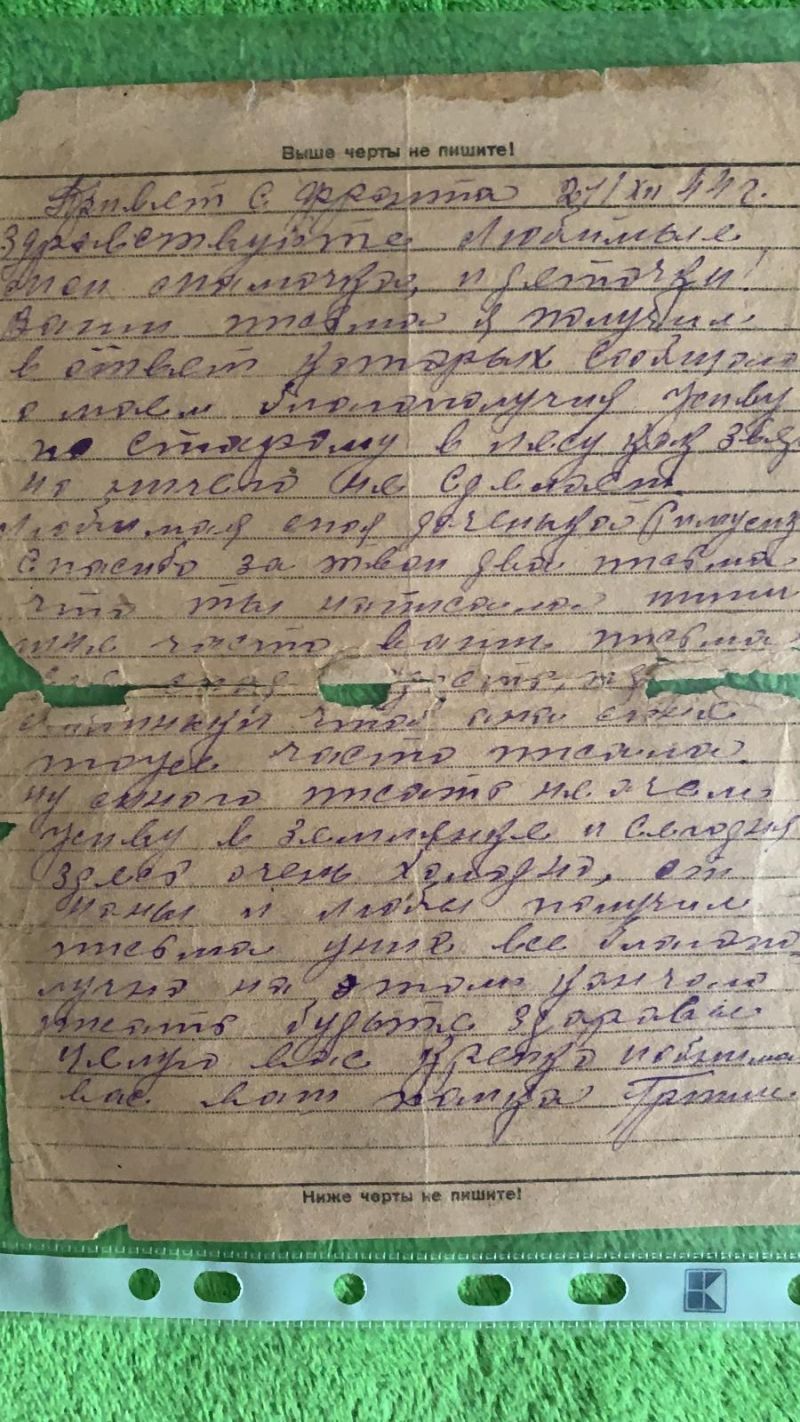 Выше черты не пишите!
Привет с фронта /XII 44 г.
Здравствуйте Любимые
мои мамочка, и деточки!
Ваши письма я получил
в ответ которых сообщаю
о моем благополучия живу
по старому в лесу как
но ничего не сделаеш
Любимая моя доченькой Римусик
Спасибо за твои два письма
что ты написала пиши
мне часто ваши письма
моя
чтоб она мне
тоже часто писала.
ну много писать не очем
живу в землянке и сегодня
здесь очень холодно, от
и Любы получил
письма уних все благопо
лучно на этом кончаю
писать будьте здоровые
Целую вас крепко и обнимаю
вас ваш папка
Ниже черты не пишите!